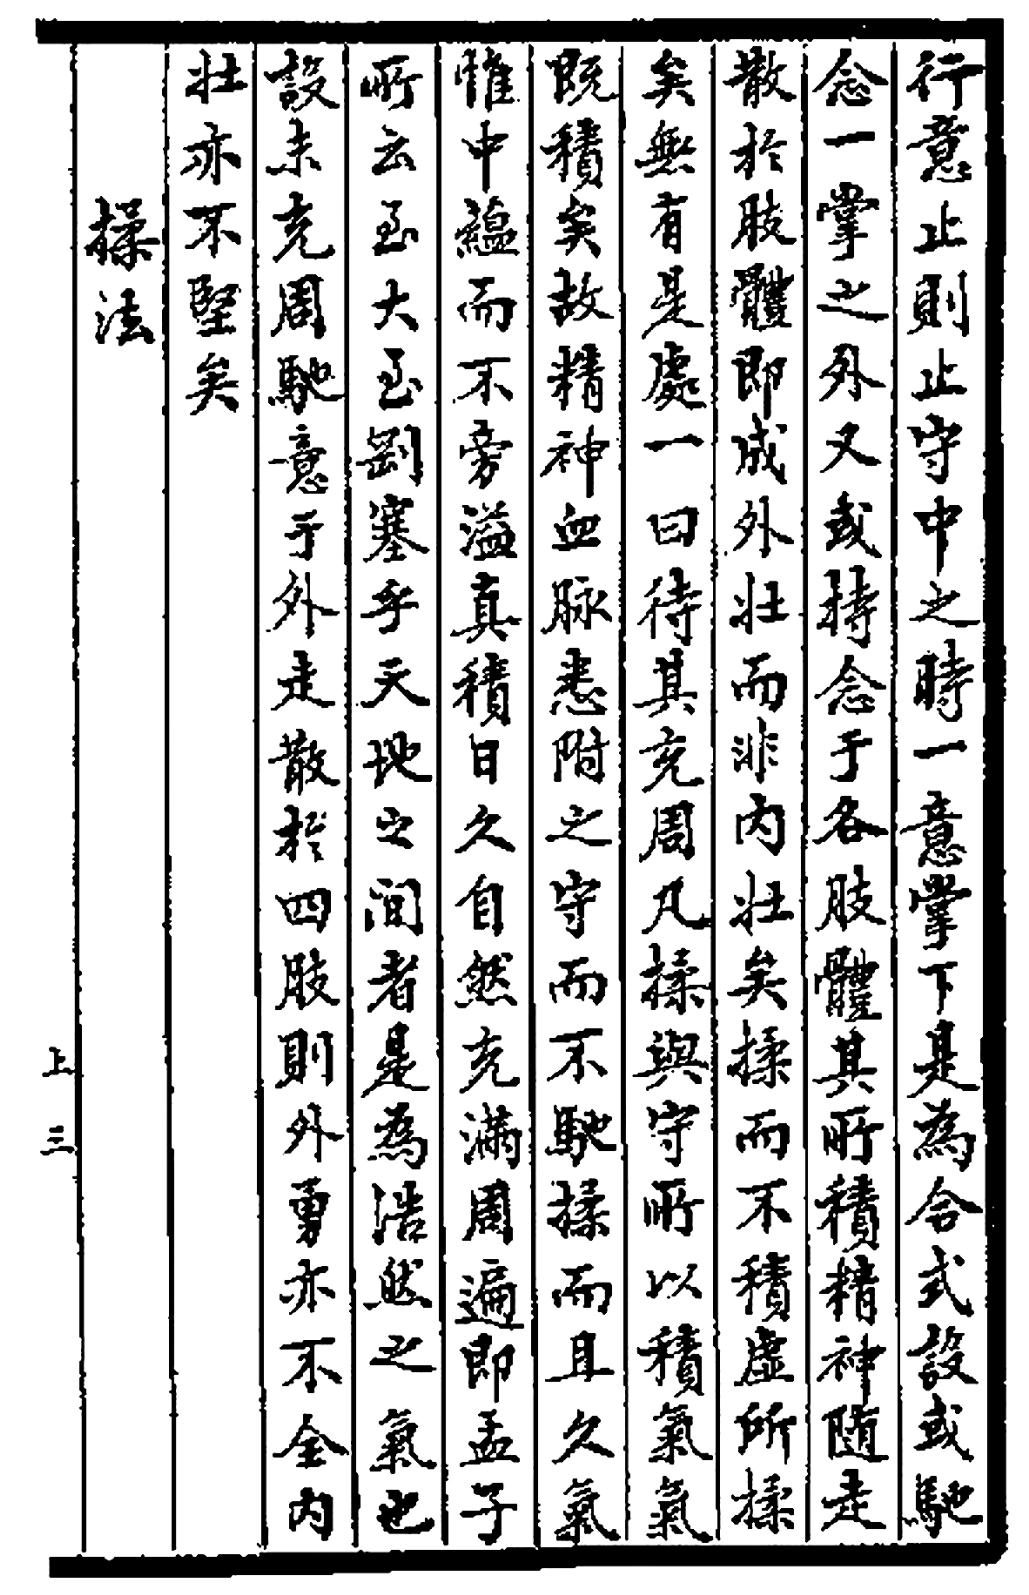 行意止則止守中之時一意掌下是為合式設或馳
念一掌之外又或持念于各肢體其所積精神随走
散於肢體即成外壯而非內壯矣揉而不積虛所揉
矣無有是處一曰待其充周凡揉與守所以積氣氣
既積矣故精神血脉悉附之守而不馳揉而且久氣
惟中蘊而不旁溢真積日久自然充滿周遍即孟子
所云至大至剛塞乎天地之間者是為浩然之氣也
設未充周馳意于外走散於四肢則外勇亦不全內
壯亦不堅矣
揉法
上 三